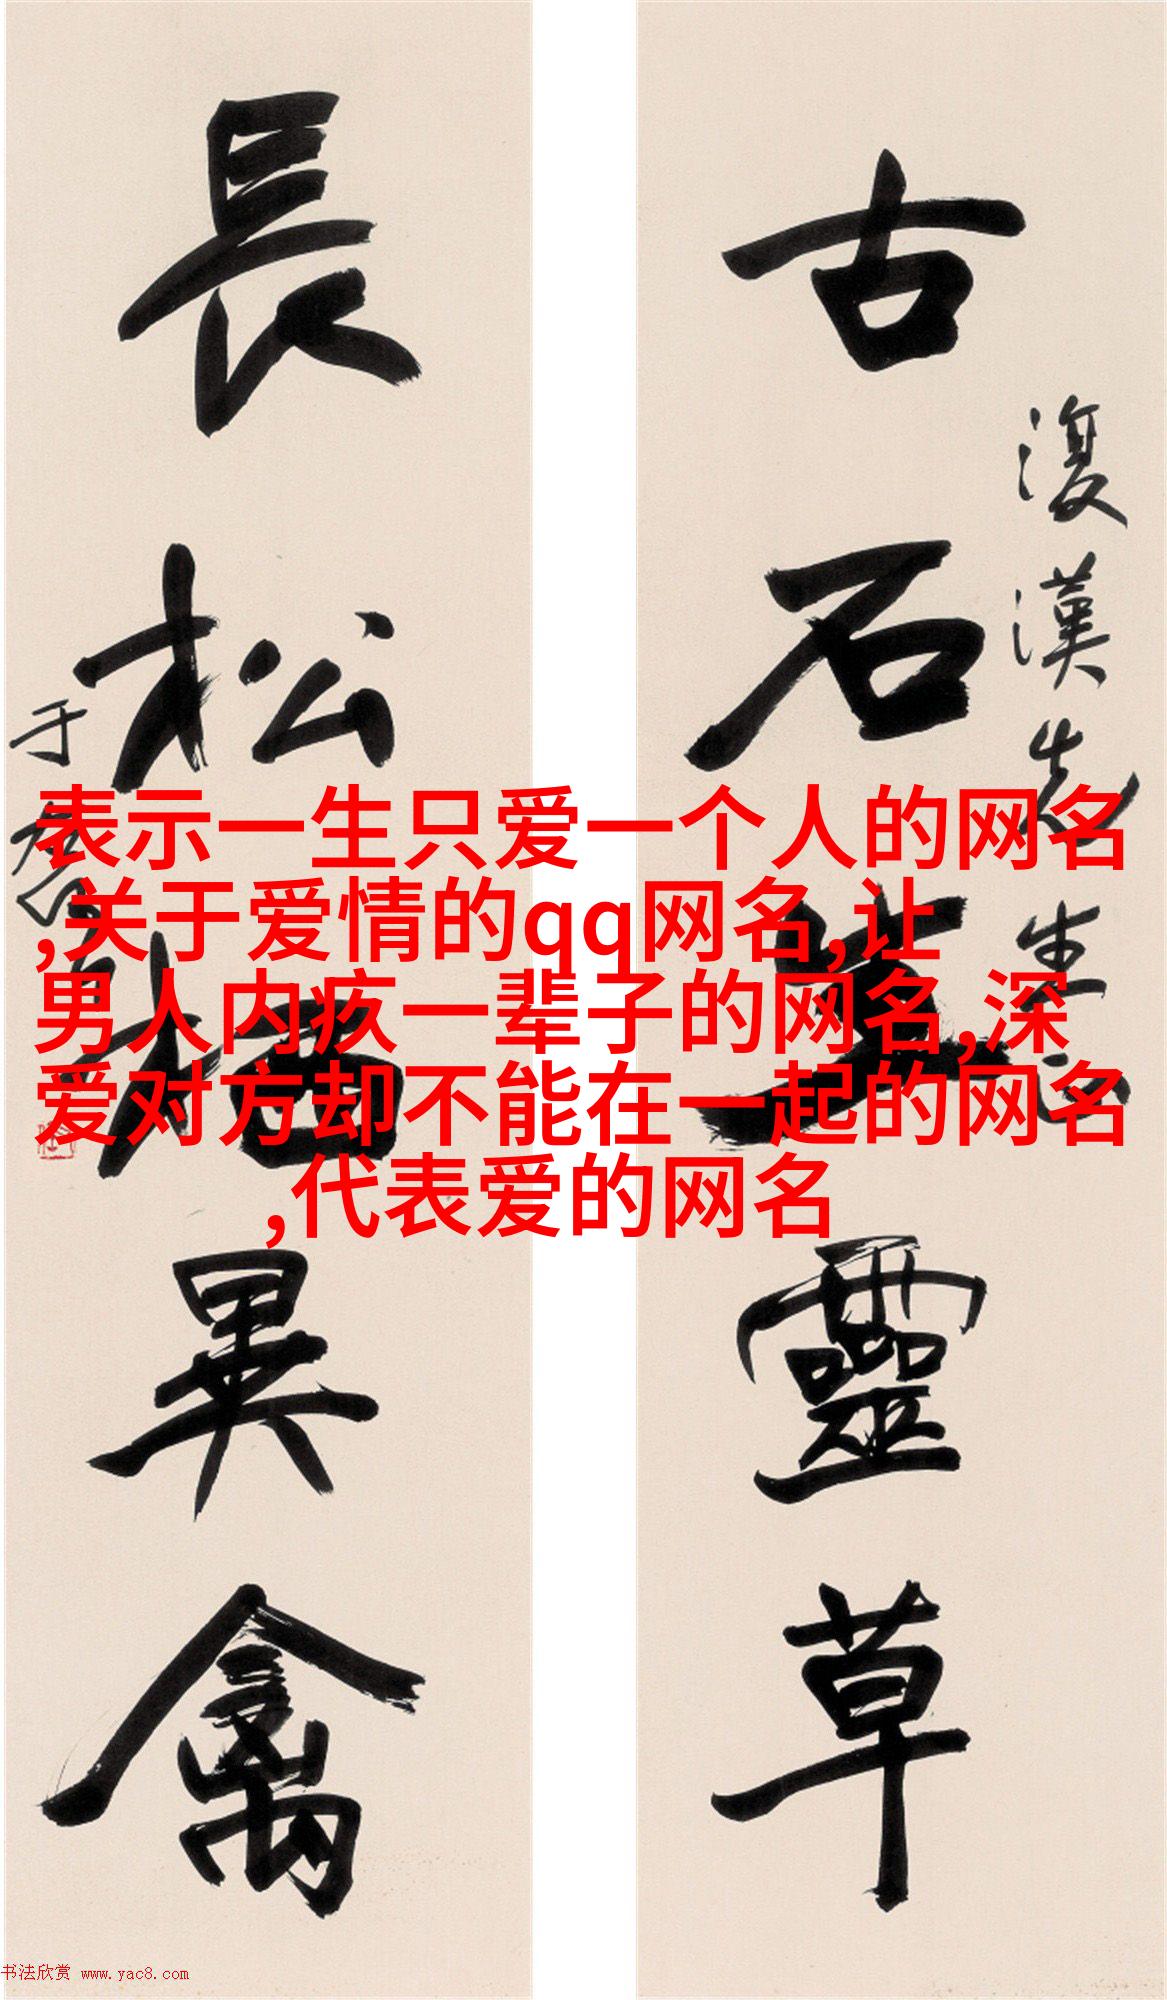 古石生靈草
復漢先生正
長松栖異禽
于右任
表示一生只爱一个人的网名
,关于爱情的qq网名,让
男人内疚一辈子的网名,深
爱对方却不能在一起的网名
,代表爱的网名
书法欣赏 www.yac8.com